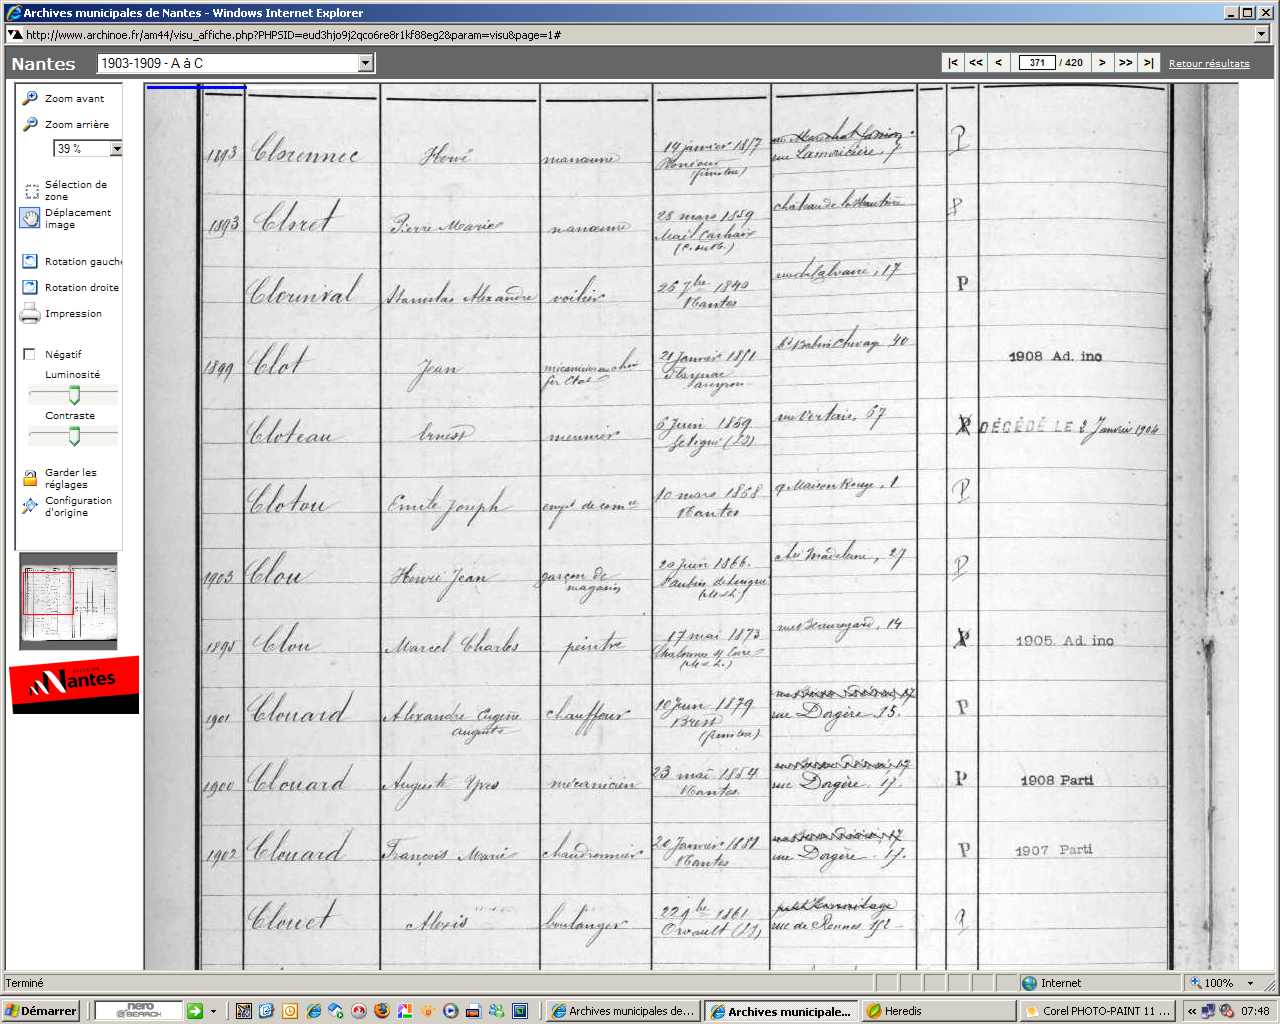 Archives municipales de Nantes - Windows Internet Explorer
http://www.archinoe.fr/am44/visu_affiche.php?PHPSID=eud3hjo9j2qco6re8r1kf88eg2&param=visu&page=1#
Nantes
1903-1909 - A à C
|< << < 371 / 420 > >> >| Retour résultats
Zoom avant
Zoom arrière
39 %
Sélection de
zone
Déplacement
image
Rotation gauche
Rotation droite
Impression
Négatif
Luminosité
Contraste
Garder les
réglages
Configuration
d'origine
Nantes
1893 Clorennec Hervé manœuvre 14 janvier 1857 rue Lamoricière, 7 P
(finistère)
1893 Cloret Pierre Marie manœuvre 28 mars 1859 château de la
Maël Carhaix
Clorinval Stanislas Alexandre voilier 26 7bre 1840 rue du Calvaire, 17 P
Nantes
1899 Clot Jean 21 Janvier 1851 40 1908 Ad. inc
aveyron
Cloteau Ernest meunier 6 Juin 1859 rue Vertais, 67 P DÉCÉDÉ LE 2 Janvier 1904
Clotou Emile Joseph empé de comce 10 mars 1868 q. Maison Rouge, 1 P
Nantes
1903 Clou Henri Jean garçon de magasin 20 juin 1866. chée Madeleine, 27 P
St aubin de Luigné
1895 Clou Marcel Charles peintre 17 mai 1873 rue Beauregard, 14 P 1905. Ad. inc
Chalonnes s/ Loire
1901 Clouard Alexandre Eugène auguste chauffeur 10 Juin 1879 rue Dorgère 35. P
Brest
(finistère)
1900 Clouard Auguste Yves mécanicien 23 mai 1854 rue Dorgère. 17. P 1908 Parti
Nantes
1902 Clouard François Marie chaudronnier 20 Janvier 1881 rue Dorgère. 17. P 1907 Parti
Nantes
Clouet Alexis boulanger 22 9bre 1861 rue de Rennes
Orvault
Terminé
Internet
100%
Démarrer
nero
SEARCH
Archives municipales de...
Archives municipale...
Heredis
Corel PHOTO-PAINT 11 ...
07:48